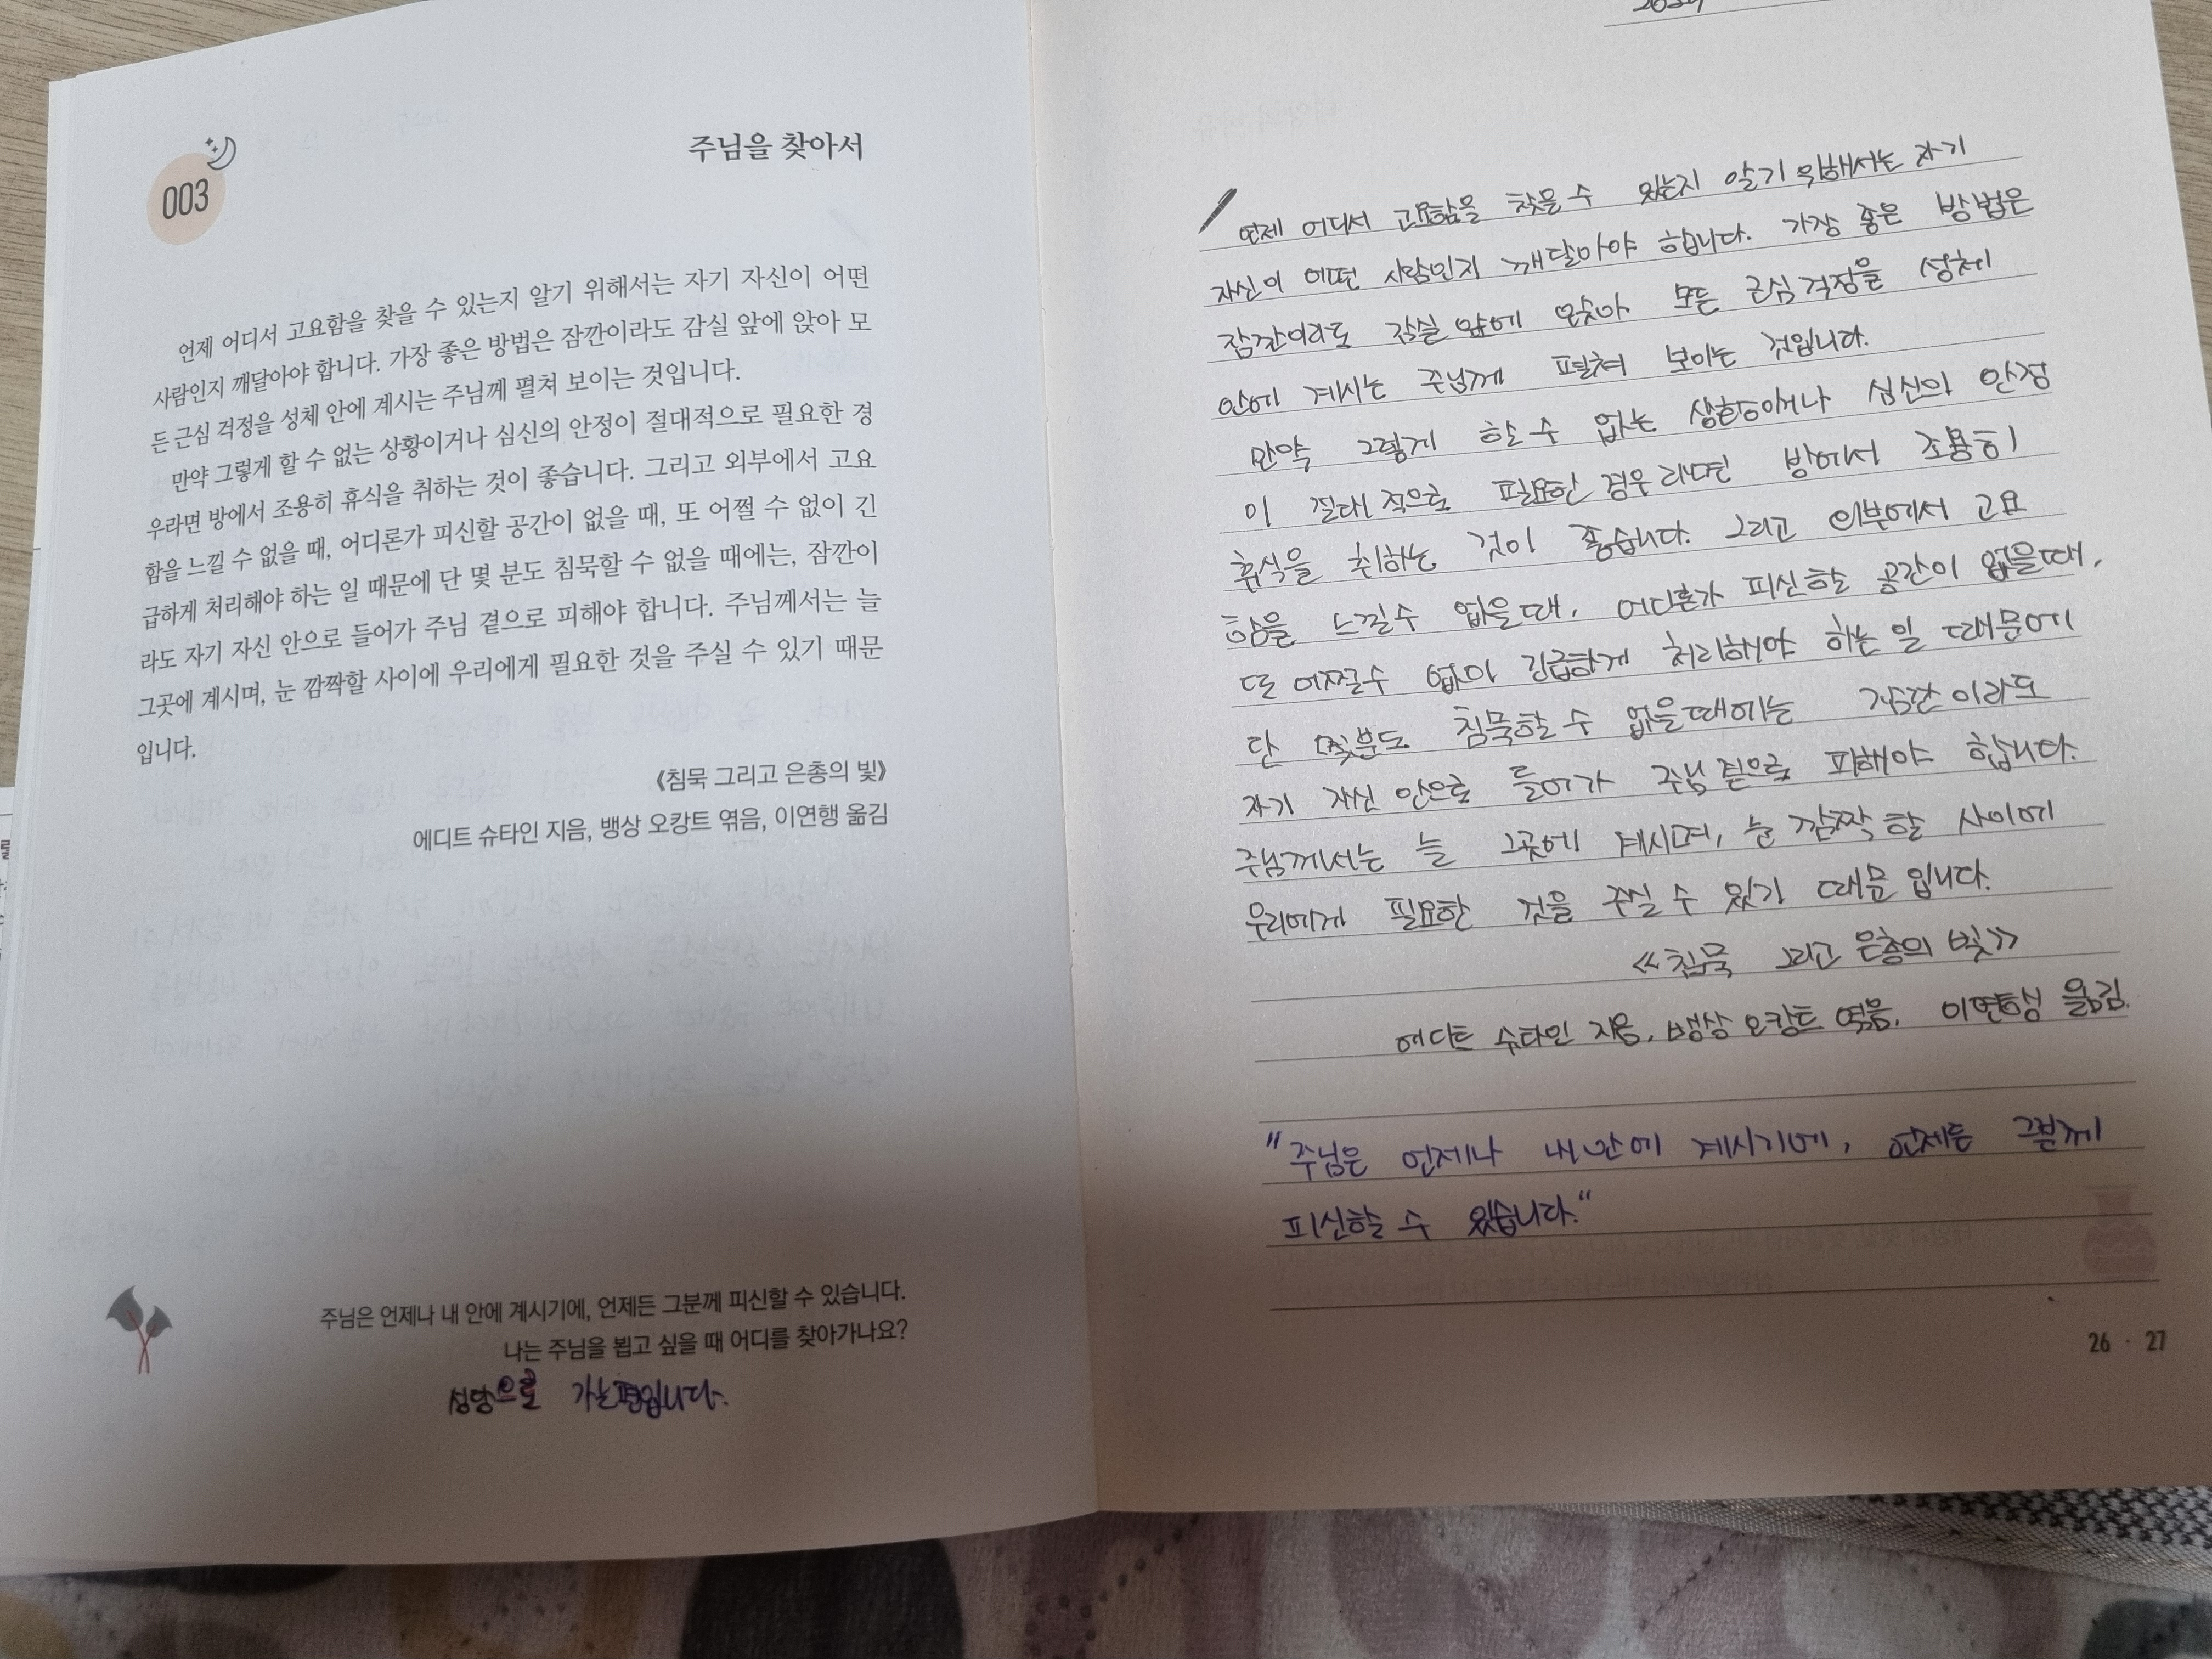 003
주님을 찾아서
언제 어디서 고요함을 찾을 수 있는지 알기 위해서는 자기 자신이 어떤
사람인지 깨달아야 합니다. 가장 좋은 방법은 잠깐이라도 감실 앞에 앉아 모
든 근심 걱정을 성체 안에 계시는 주님께 펼쳐 보이는 것입니다.
만약 그렇게 할 수 없는 상황이거나 심신의 안정이 절대적으로 필요한 경
우라면 방에서 조용히 휴식을 취하는 것이 좋습니다. 그리고 외부에서 고요
함을 느낄 수 없을 때, 어디론가 피신할 공간이 없을 때, 또 어쩔 수 없이 긴
급하게 처리해야 하는 일 때문에 단 몇 분도 침묵할 수 없을 때에는, 잠깐이
라도 자기 자신 안으로 들어가 주님 곁으로 피해야 합니다. 주님께서는 늘
그곳에 계시며, 눈 깜짝할 사이에 우리에게 필요한 것을 주실 수 있기 때문
입니다.
《침묵 그리고 은총의 빛》
에디트 슈타인 지음, 뱅상 오캉트 엮음, 이연행 옮김
주님은 언제나 내 안에 계시기에, 언제든 그분께 피신할 수 있습니다.
나는 주님을 뵙고 싶을 때 어디를 찾아가나요?
성당으로 가는편입니다.
언제 어디서 고요함을 찾을 수 있는지 알기 위해서는 자기
자신이 어떤 사람인지 깨달아야 합니다. 가장 좋은 방법은
잠깐이라도 감실 앞에 앉아 모든 근심 걱정을 성체
안에 계시는 주님께 펼쳐 보이는 것입니다.
만약 그렇게 할 수 없는 상황이거나 심신의 안정
이 절대적으로 필요한 경우라면 방에서 조용히
휴식을 취하는 것이 좋습니다. 그리고 외부에서 고요
함을 느낄수 없을때, 어디론가 피신할 공간이 없을때,
또 어쩔수 없이 긴급하게 처리해야 하는 일 때문에
단 몇분도 침묵할 수 없을때에는 잠깐이라도
자기 자신 안으로 들어가 주님 곁으로 피해야 합니다.
주님께서는 늘 그곳에 계시며, 눈 깜짝 할 사이에
우리에게 필요한 것을 주실 수 있기 때문 입니다.
≪침묵 그리고 은총의 빛≫
에디트 슈타인 지음, 뱅상 오캉트 엮음, 이연행 옮김.
"주님은 언제나 내 안에 계시기에, 언제든 그분께
피신할 수 있습니다."
26 · 27